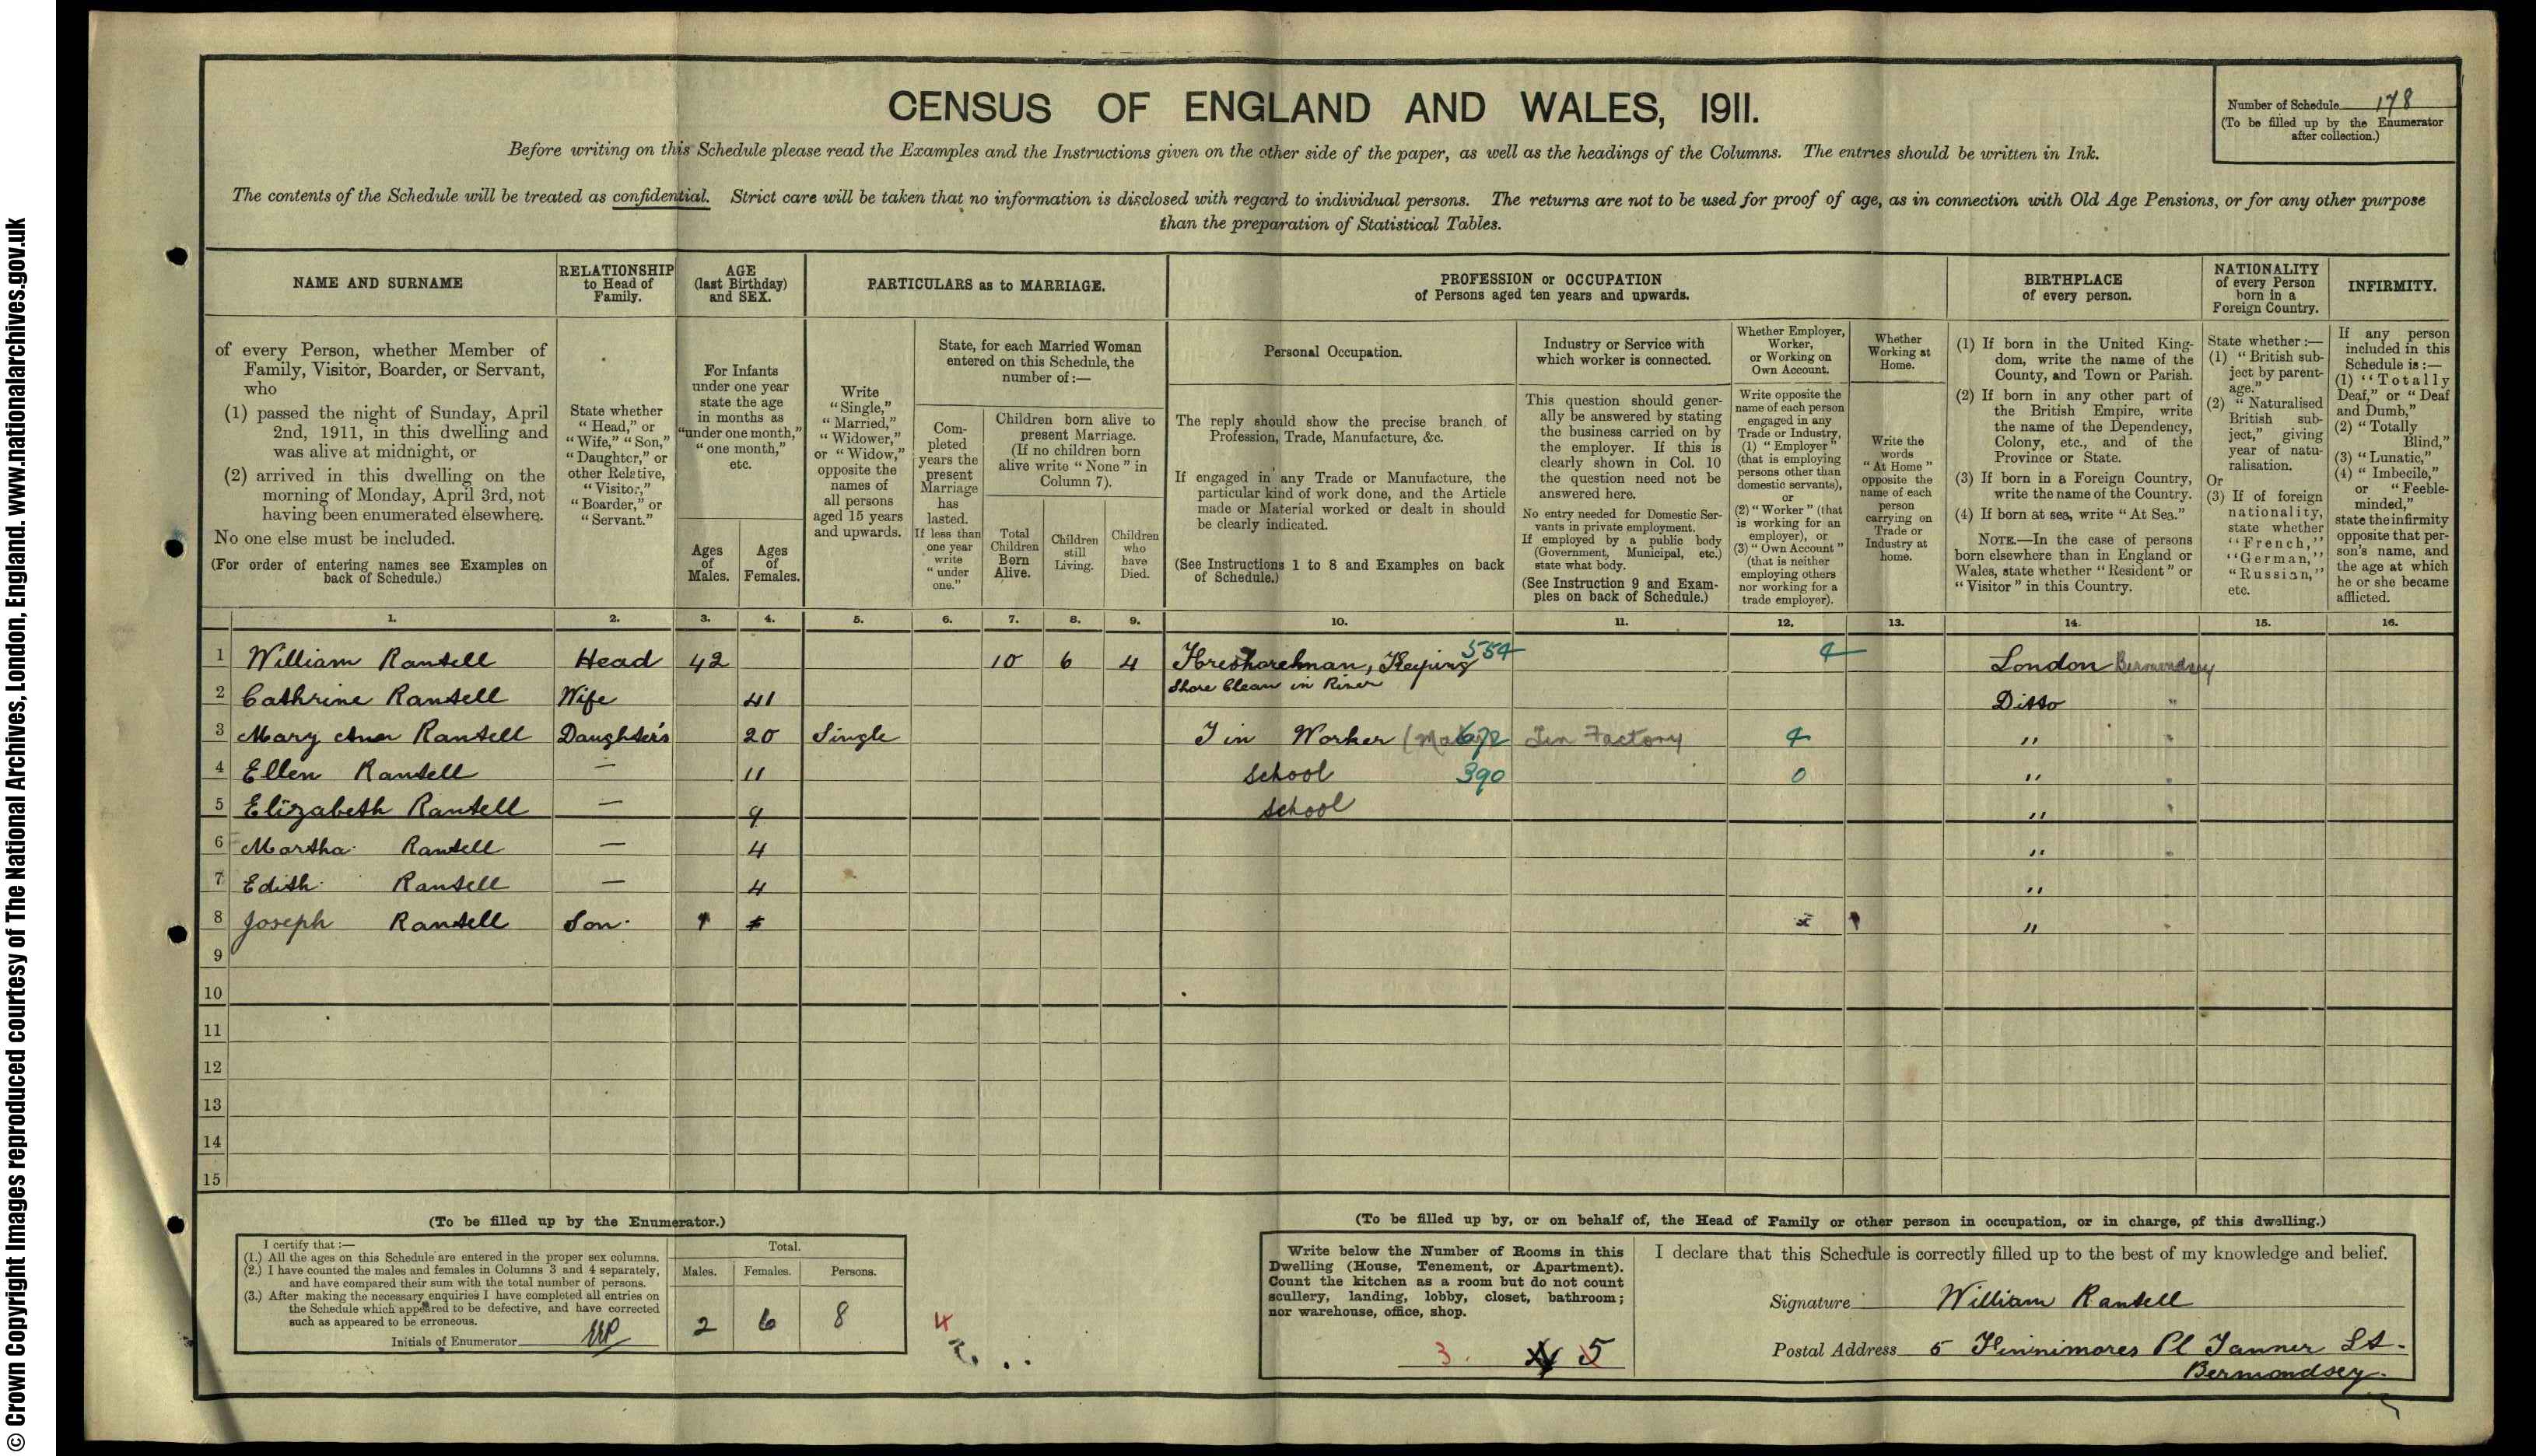 © Crown Copyright Images reproduced courtesy of The National Archives, London, England. www.nationalarchives.gov.uk
CENSUS OF ENGLAND AND WALES, 1911.
Number of Schedule 178
(To be filled up by the Enumerator
after collection.)
Before writing on this Schedule please read the Examples and the Instructions given on the other side of the paper, as well as the headings of the Columns. The entries should be written in Ink.
The contents of the Schedule will be treated as confidential. Strict care will be taken that no information is disclosed with regard to individual persons. The returns are not to be used for proof of age, as in connection with Old Age Pensions, or for any other purpose
than the preparation of Statistical Tables.
NAME AND SURNAME
of every Person, whether Member of
Family, Visitor, Boarder, or Servant,
who
(1) passed the night of Sunday, April
2nd, 1911, in this dwelling and
was alive at midnight, or
(2) arrived in this dwelling on the
morning of Monday, April 3rd, not
having been enumerated elsewhere.
No one else must be included.
(For order of entering names see Examples on
back of Schedule.)
RELATIONSHIP
to Head of
Family.
State whether
"Head," or
"Wife," "Son,"
"Daughter," or
other Relative,
"Visitor,"
"Boarder," or
"Servant."
AGE
(last Birthday)
and SEX.
For Infants
under one year
state the age
in months as
"under one month,"
"one month,"
etc.
Ages
of
Males.
Ages
of
Females.
PARTICULARS as to MARRIAGE.
Write
"Single,"
"Married,"
"Widower,"
or "Widow,"
opposite the
names of
all persons
aged 15 years
and upwards.
State, for each Married Woman
entered on this Schedule, the
number of:—
Com-
pleted
years the
present
Marriage
has
lasted.
If less than
one year
write
"under
one."
Children born alive to
present Marriage.
(If no children born
alive write "None" in
Column 7).
Total
Children
Born
Alive.
Children
still
Living.
Children
who
have
Died.
PROFESSION or OCCUPATION
of Persons aged ten years and upwards.
Personal Occupation.
The reply should show the precise branch of
Profession, Trade, Manufacture, &c.
If engaged in any Trade or Manufacture, the
particular kind of work done, and the Article
made or Material worked or dealt in should
be clearly indicated.
(See Instructions 1 to 8 and Examples on back
of Schedule.)
Industry or Service with
which worker is connected.
This question should gener-
ally be answered by stating
the business carried on by
the employer. If this is
clearly shown in Col. 10
the question need not be
answered here.
No entry needed for Domestic Ser-
vants in private employment.
If employed by a public body
(Government, Municipal, etc.)
state what body.
(See Instruction 9 and Exam-
ples on back of Schedule.)
Whether Employer,
Worker,
or Working on
Own Account.
Write opposite the
name of each person
engaged in any
Trade or Industry,
(1) "Employer"
(that is employing
persons other than
domestic servants),
or
(2) "Worker" (that
is working for an
employer), or
(3) "Own Account"
(that is neither
employing others
nor working for a
trade employer).
Whether
Working at
Home.
Write the
words
"At Home"
opposite the
name of each
person
carrying on
Trade or
Industry at
home.
BIRTHPLACE
of every person.
(1) If born in the United King-
dom, write the name of the
County, and Town or Parish.
(2) If born in any other part of
the British Empire, write
the name of the Dependency,
Colony, etc., and of the
Province or State.
(3) If born in a Foreign Country,
write the name of the Country.
(4) If born at sea, write "At Sea."
NOTE.—In the case of persons
born elsewhere than in England or
Wales, state whether "Resident" or
"Visitor" in this Country.
NATIONALITY
of every Person
born in a
Foreign Country.
State whether:—
(1) "British sub-
ject by parent-
age."
(2) "Naturalised
British sub-
ject," giving
year of natu-
ralisation.
Or
(3) If of foreign
nationality,
state whether
"French,"
"German,"
"Russian,"
etc.
INFIRMITY.
If any person
included in this
Schedule is:—
(1) "Totally
Deaf," or "Deaf
and Dumb,"
(2) "Totally
Blind,"
(3) "Lunatic,"
(4) "Imbecile,"
or "Feeble-
minded,"
state the infirmity
opposite that per-
son's name, and
the age at which
he or she became
afflicted.
1. 2. 3. 4. 5. 6. 7. 8. 9. 10. 11. 12. 13. 14. 15. 16.
1 William Ransell Head 42 10 6 4 Foreshoreman, Keeping 554 4 London Bermondsey
Shore Clean in River
2 Cathrine Ransell Wife 41 Ditto "
3 Mary Ann Ransell Daughters 20 Single Tin Worker 672 Tin Factory 4 " "
4 Ellen Ransell — 11 School 390 0 " "
5 Elizabeth Ransell — 9 School " "
6 Martha Ransell — 4 " "
7 Edith Ransell — 4 "
8 Joseph Ransell Son 1 "
9
10
11
12
13
14
15
(To be filled up by the Enumerator.)
I certify that:—
(1.) All the ages on this Schedule are entered in the proper sex columns.
(2.) I have counted the males and females in Columns 3 and 4 separately,
and have compared their sum with the total number of persons.
(3.) After making the necessary enquiries I have completed all entries on
the Schedule which appeared to be defective, and have corrected
such as appeared to be erroneous.
Initials of Enumerator
Total.
Males. Females. Persons.
2 6 8
4
(To be filled up by, or on behalf of, the Head of Family or other person in occupation, or in charge, of this dwelling.)
Write below the Number of Rooms in this
Dwelling (House, Tenement, or Apartment).
Count the kitchen as a room but do not count
scullery, landing, lobby, closet, bathroom;
nor warehouse, office, shop.
3. 5
I declare that this Schedule is correctly filled up to the best of my knowledge and belief.
Signature William Ransell
Postal Address 5 Finnimores Pl Tanner St.
Bermondsey.